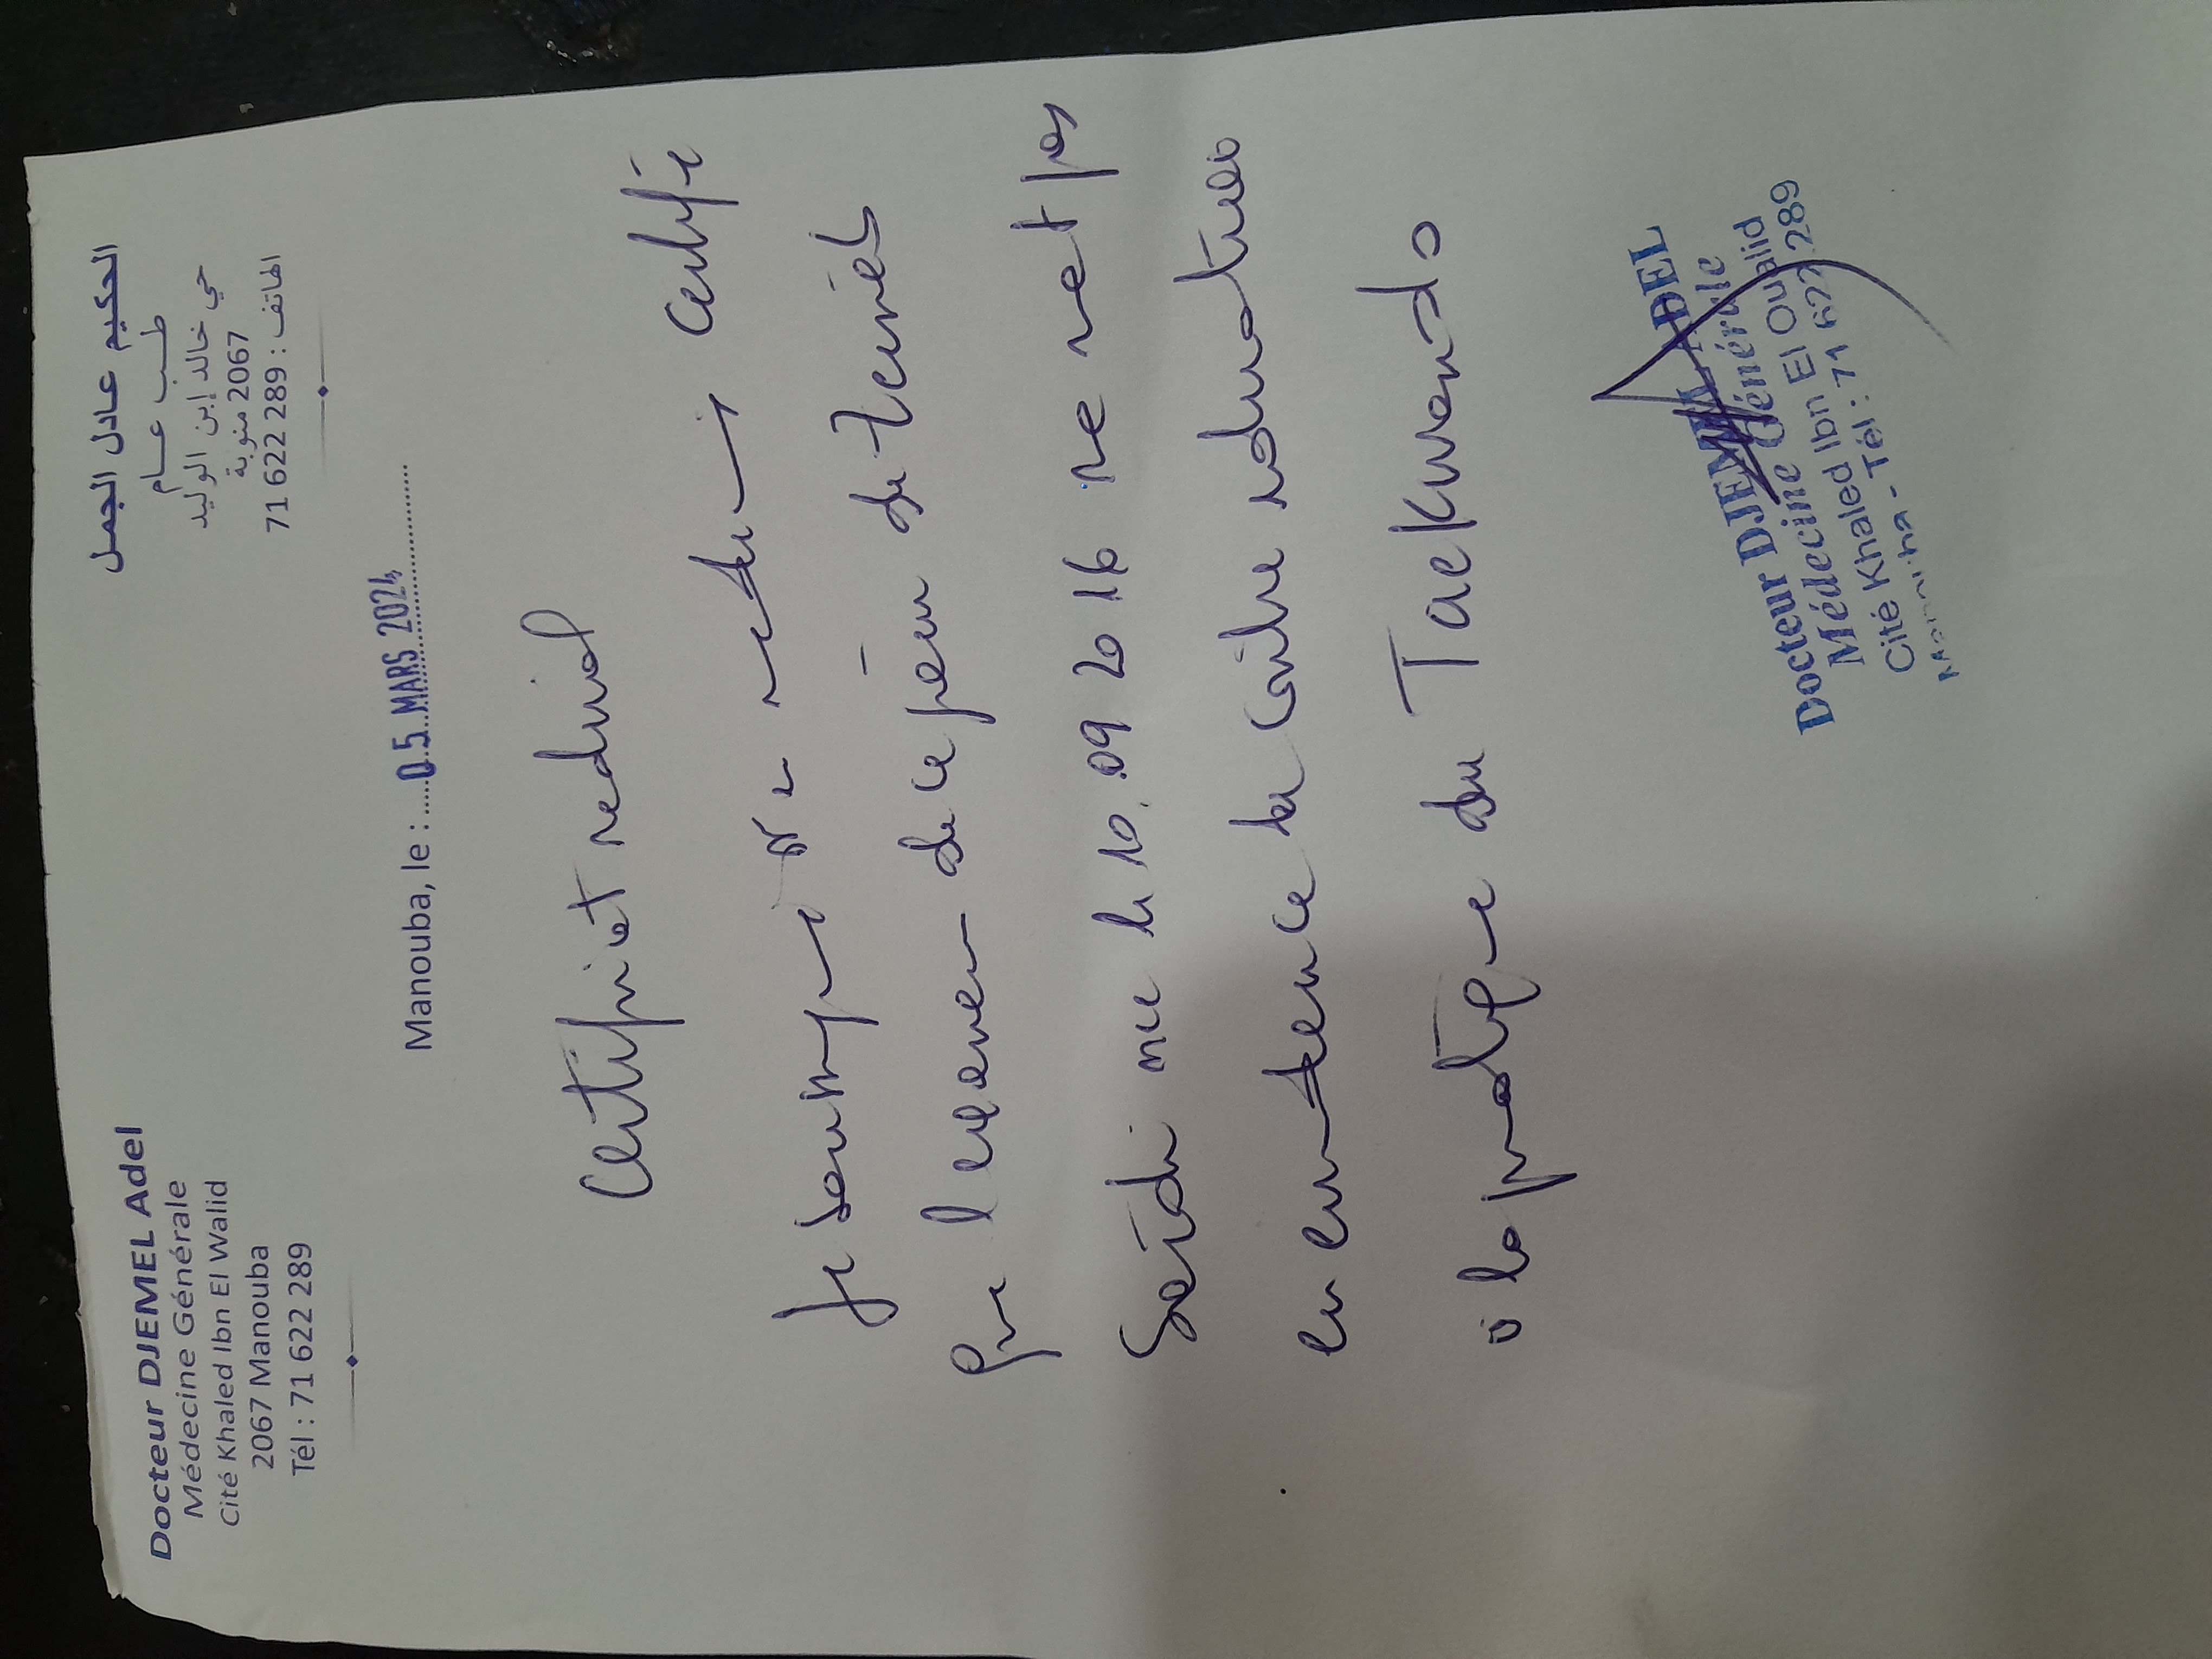 Docteur DJEMEL Adel
Médecine Générale
Cité Khaled Ibn El Walid
2067 Manouba
Tél : 71 622 289
الحكيم عادل الجمل
طب عام
حي خالد إبن الوليد
2067 منوبة
الهاتف : 71 622 289
Manouba, le : 05 MARS 2024
Certificat medical
Je soussigné Dr medecin certifie
que l'examen de ce jour de
Saidi né le 10.09 2016 ne met pas
en evidence de contre indication
à la pratique du Taekwondo
Docteur DJEMEL ADEL
Médecine Générale
Cité Khaled Ibn El Oualid
Manouba - Tél : 71 622 289